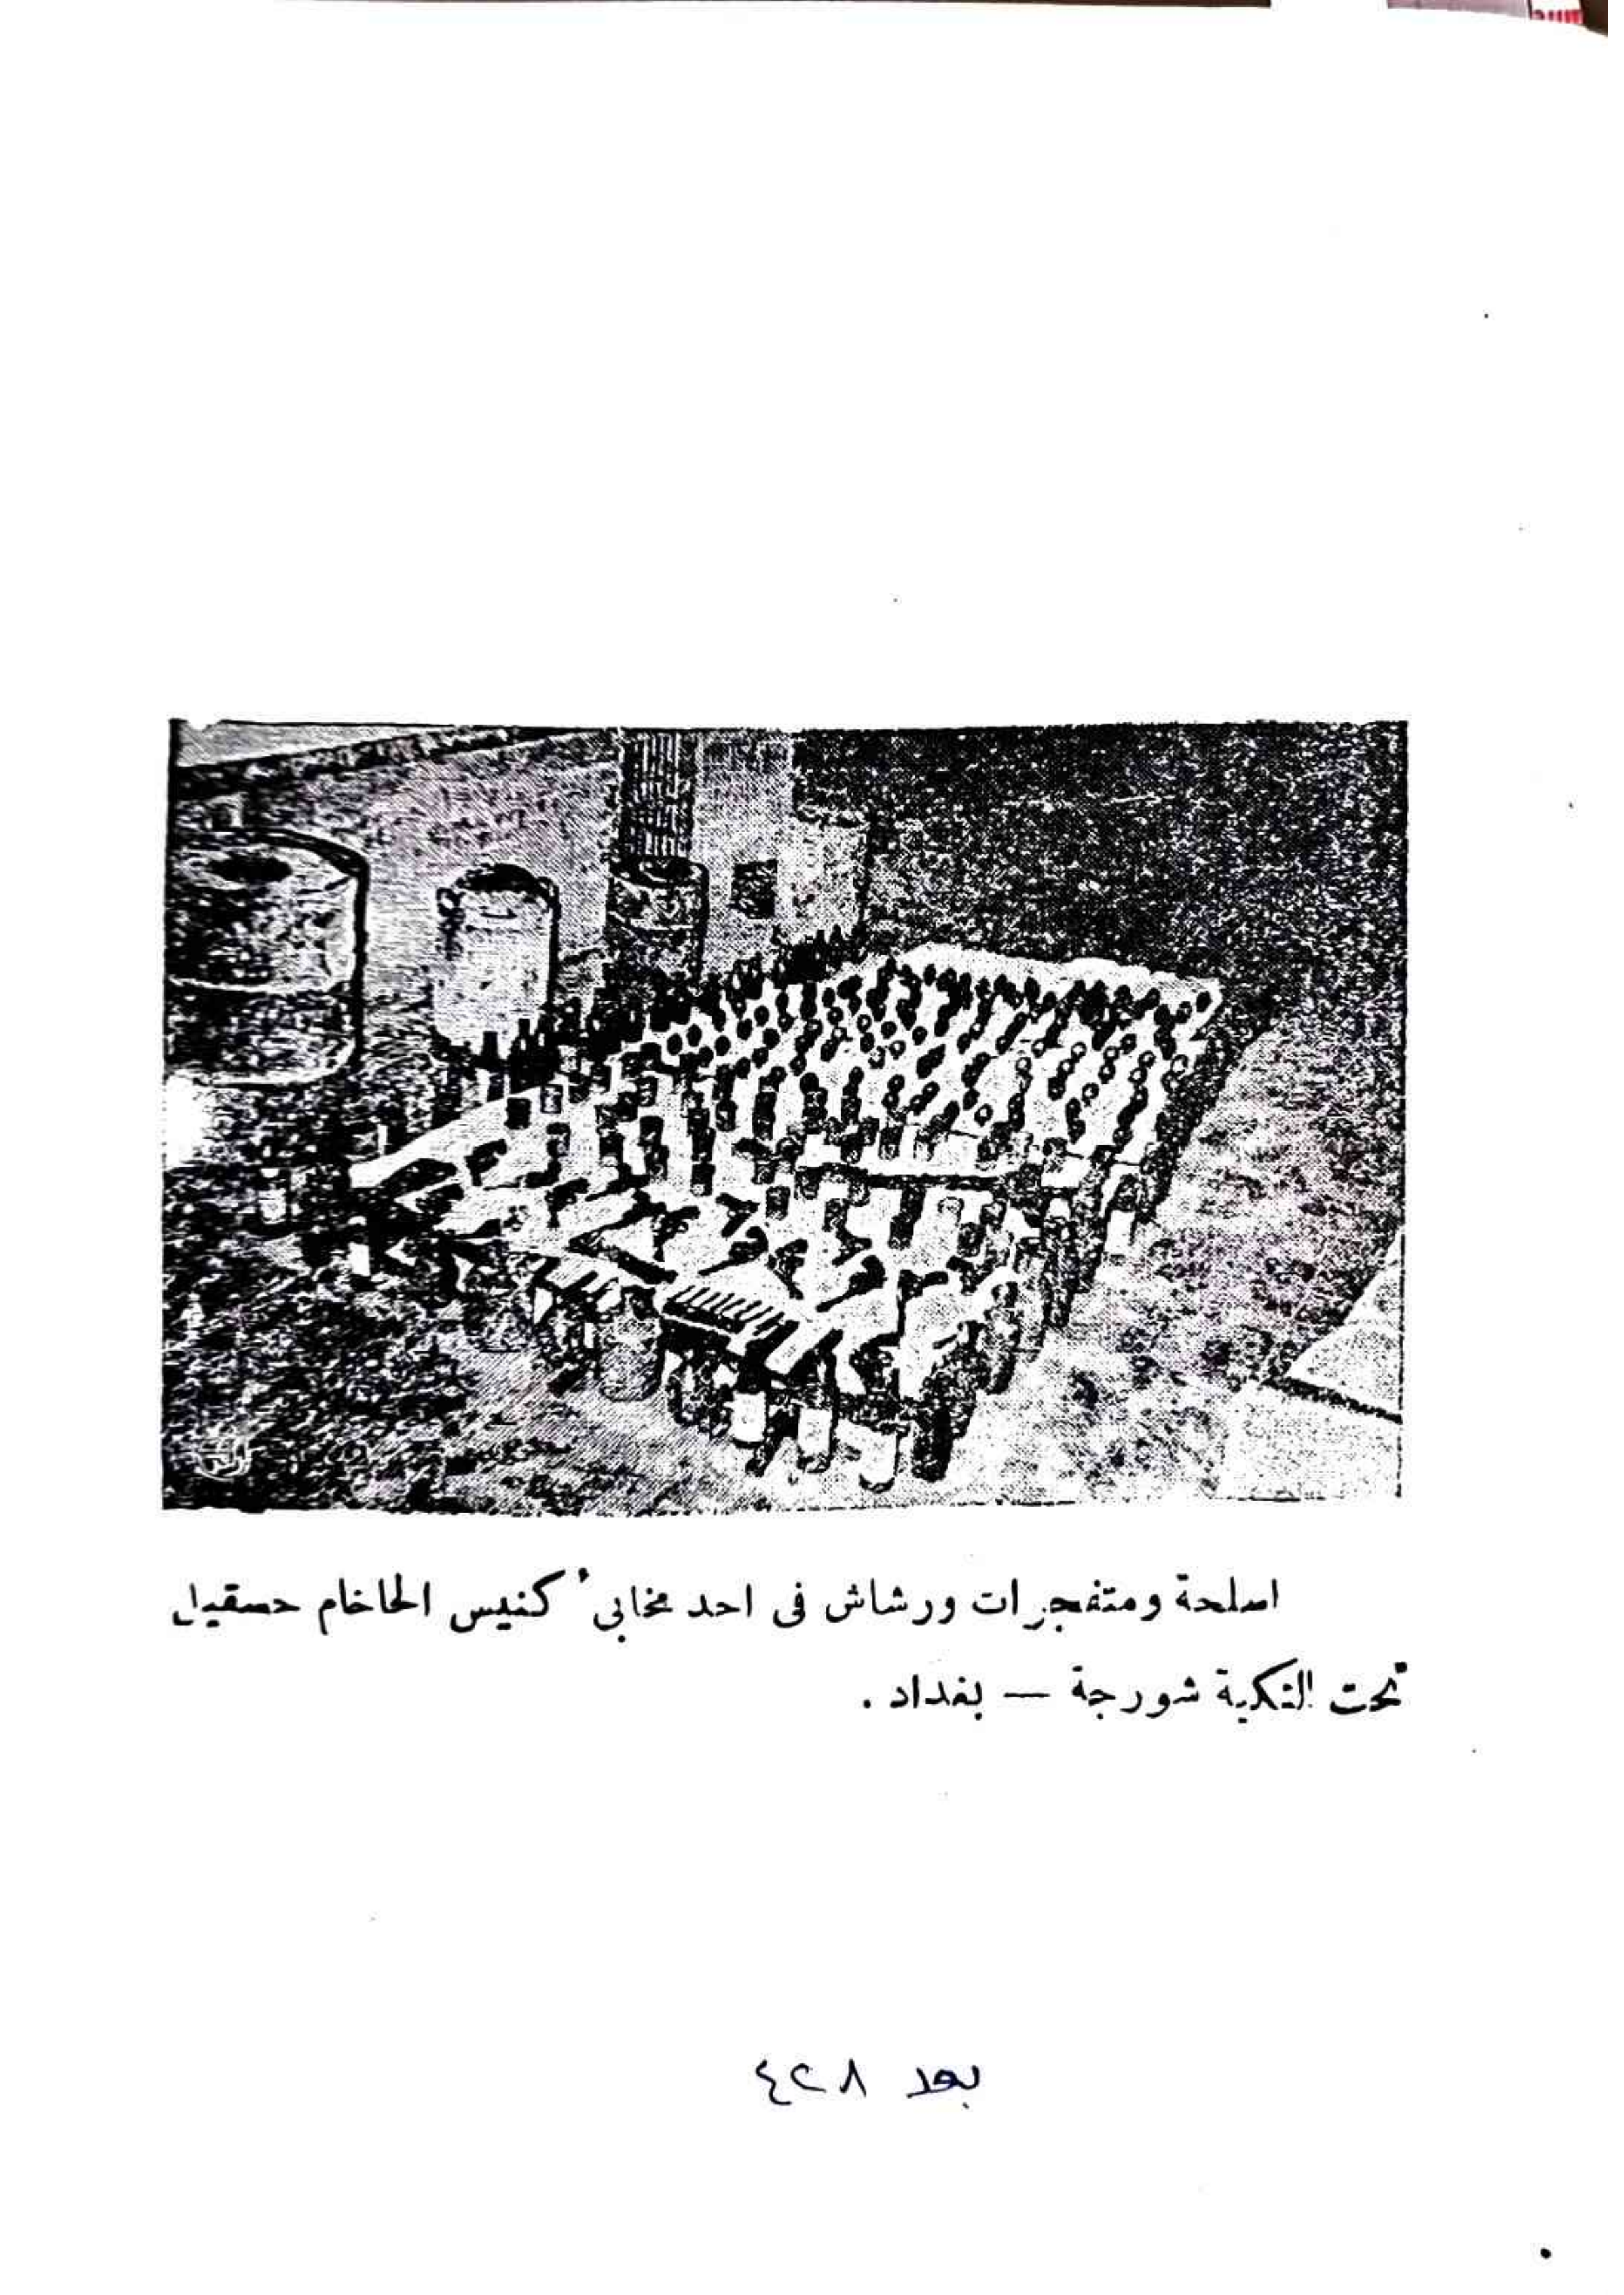 اسلحة ومتفجرات ورشاش فى احد مخابىء كنيس الحاخام حسقيل
تحت التكية شورجة — بغداد .
بعد ٤٢٨